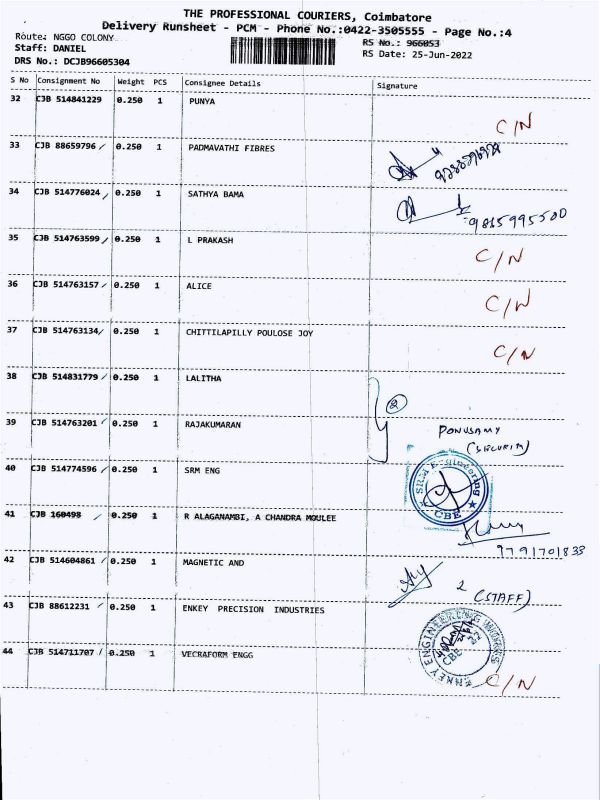 THE PROFESSIONAL COURIERS, Coimbatore
Delivery Runsheet - PCM - Phone No.:0422-3505555 - Page No.:4
Route: NGGO COLONY
Staff: DANIEL
DRS No.: DCJB96605304
RS No.: 966053
RS Date: 25-Jun-2022
S No Consignment No Weight PCS Consignee Details Signature
32 CJB 514841229 0.250 1 PUNYA
C/N
33 CJB 88659796 0.250 1 PADMAVATHI FIBRES
34 CJB 514776024 0.250 1 SATHYA BAMA
9865995500
35 CJB 514763599 0.250 1 L PRAKASH
C/N
36 CJB 514763157 0.250 1 ALICE
C/N
37 CJB 514763134 0.250 1 CHITTILAPILLY POULOSE JOY
C/N
38 CJB 514831779 0.250 1 LALITHA
2
39 CJB 514763201 0.250 1 RAJAKUMARAN
PONUSAMY
(SECURITY)
40 CJB 514774596 0.250 1 SRM ENG
SRM Engineering
CBE
41 CJB 160498 0.250 1 R ALAGANAMBI, A CHANDRA MOULEE
9791701833
42 CJB 514604861 0.250 1 MAGNETIC AND
2 (STAFF)
43 CJB 88612231 0.250 1 ENKEY PRECISION INDUSTRIES
ENKEY ENGINEERING WORKS
CBE
44 CJB 514711707 0.250 1 VECRAFORM ENGG
C/N